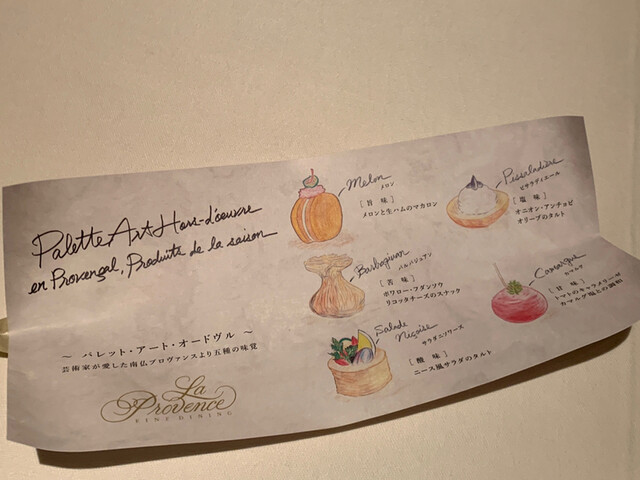 Palette Art Hors-d'oeuvre
en Provençal, Produits de la saison
~ パレット・アート・オードヴル ~
芸術家が愛した南仏プロヴァンスより五種の味覚
La
Provence
FINE DINING
Melon
メロン
[旨味]
メロンと生ハムのマカロン
Pissaladière
ピサラディエール
[塩味]
オニオン・アンチョビ
オリーブのタルト
Barbagiuan
バルバジュアン
[苦味]
ポワロー・フダンソウ
リコッタチーズのスナック
Camargue
カマルグ
[甘味]
トマトのキャラメリーゼ
カマルグ塩との調和
Salade
Niçoise
サラダニソワーズ
[酸味]
ニース風サラダのタルト